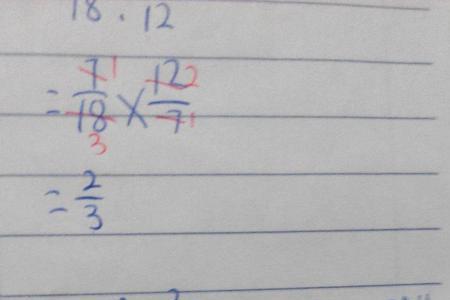 18 . 12
= 7 1 / 18 3 × 12 2 / 7 1
= 2 / 3